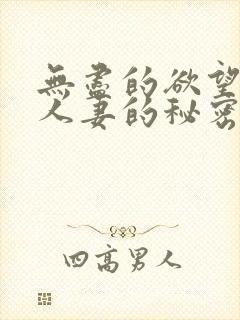 無盡的欲望
人妻的秘密
四高男人